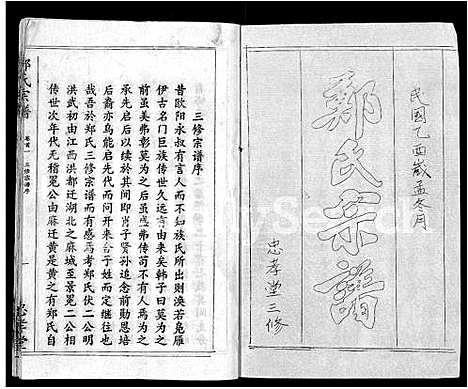 民国乙酉歲孟冬月
鄭氏宗譜
忠孝堂三修
三修宗谱序
昔欧阳永叔有言人而不知族氏所出则涣若凫雁
伊古名门巨族传世久远有由来矣韩子曰莫为之
前虽美弗彰莫为之后虽盛弗传苟不有人焉为之
承先启后以续於其间即肖子贤孙追念前勋恩培
后裔亦乌能启先代而开来合于姓而定继往也
哉吾於郑氏三修宗谱而有感焉考郑氏伏二公明
洪武初由江西洪都迁湖北之麻城至景冕二公相
传世次年代无稽冕公由麻迁黄是黄之有郑氏自
郑氏宗谱
卷首
三修宗谱序
一
忠孝堂